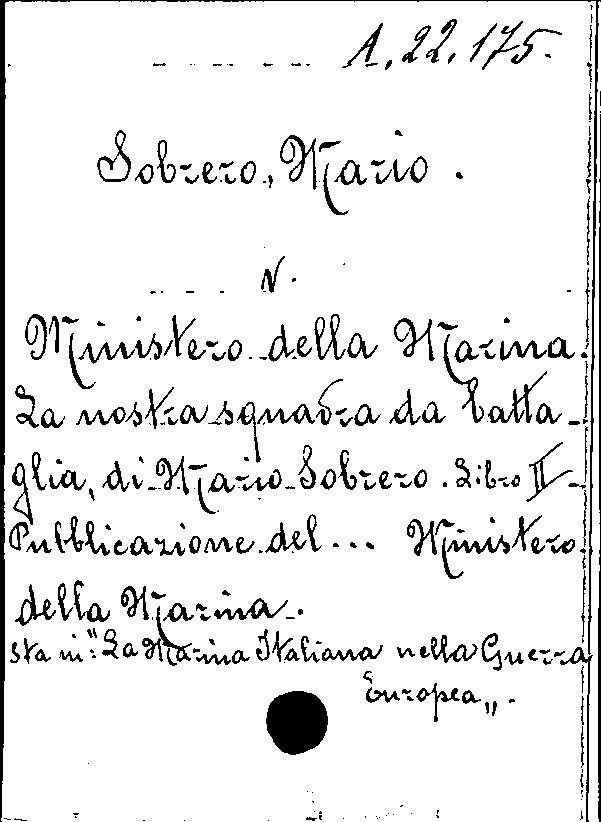 A. 22. 175.
Sobrero, Mario.
V.
Ministero della Marina.
La nostra squadra da batta-
glia, di Mario Sobrero. Libro II
Pubblicazione del... Ministero
della Marina.
sta in: "La Marina Italiana nella Guerra
Europea„.